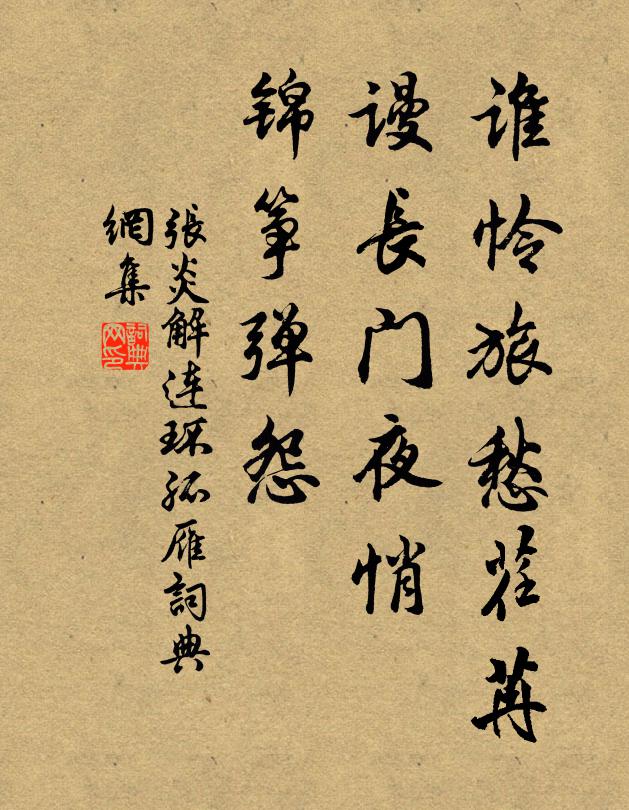 谁怜旅愁荏苒
谩長门夜悄
锦筝弹怨
張炎解连环孤雁詞典
網集
詞典网印